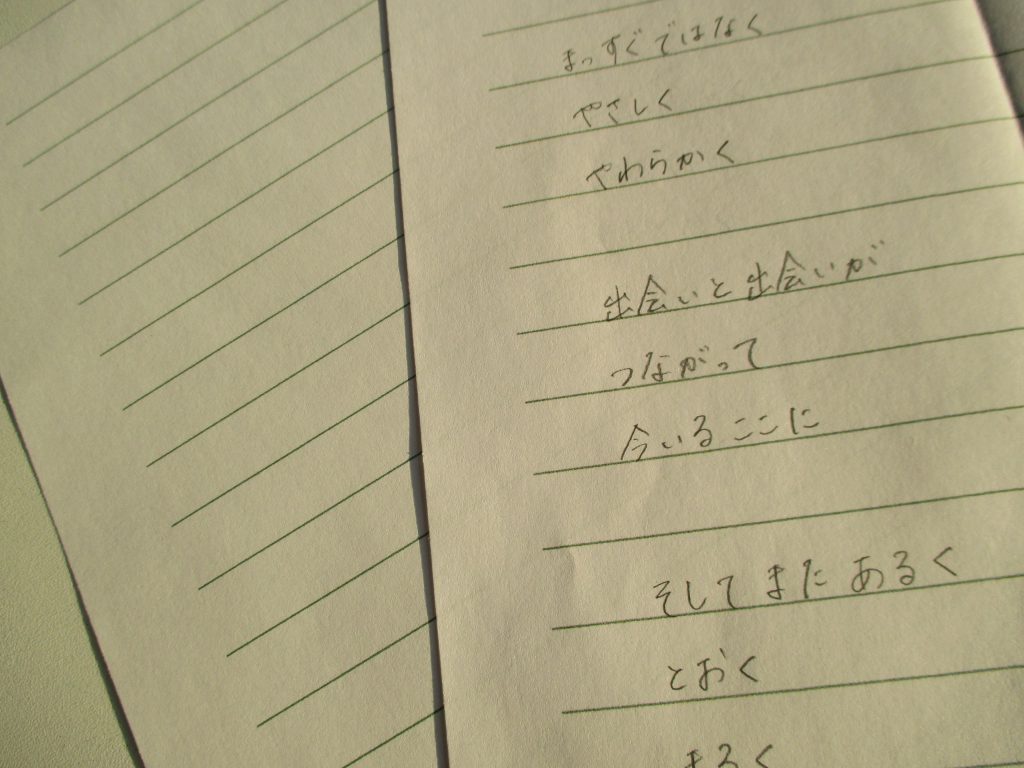 まっすぐではなく
やさしく
やわらかく
出会いと出会いが
つながって
今いるここに
そしてまた あるく
とおく
まるく